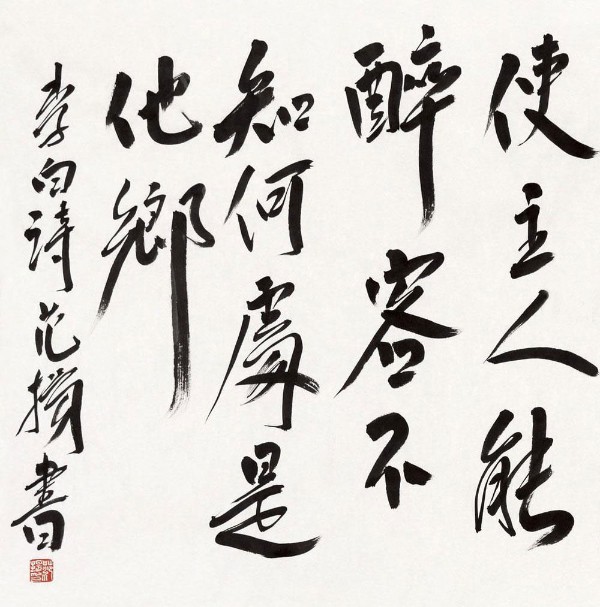 使主人能
醉客不
知何處是
他鄉
李白詩范揚書